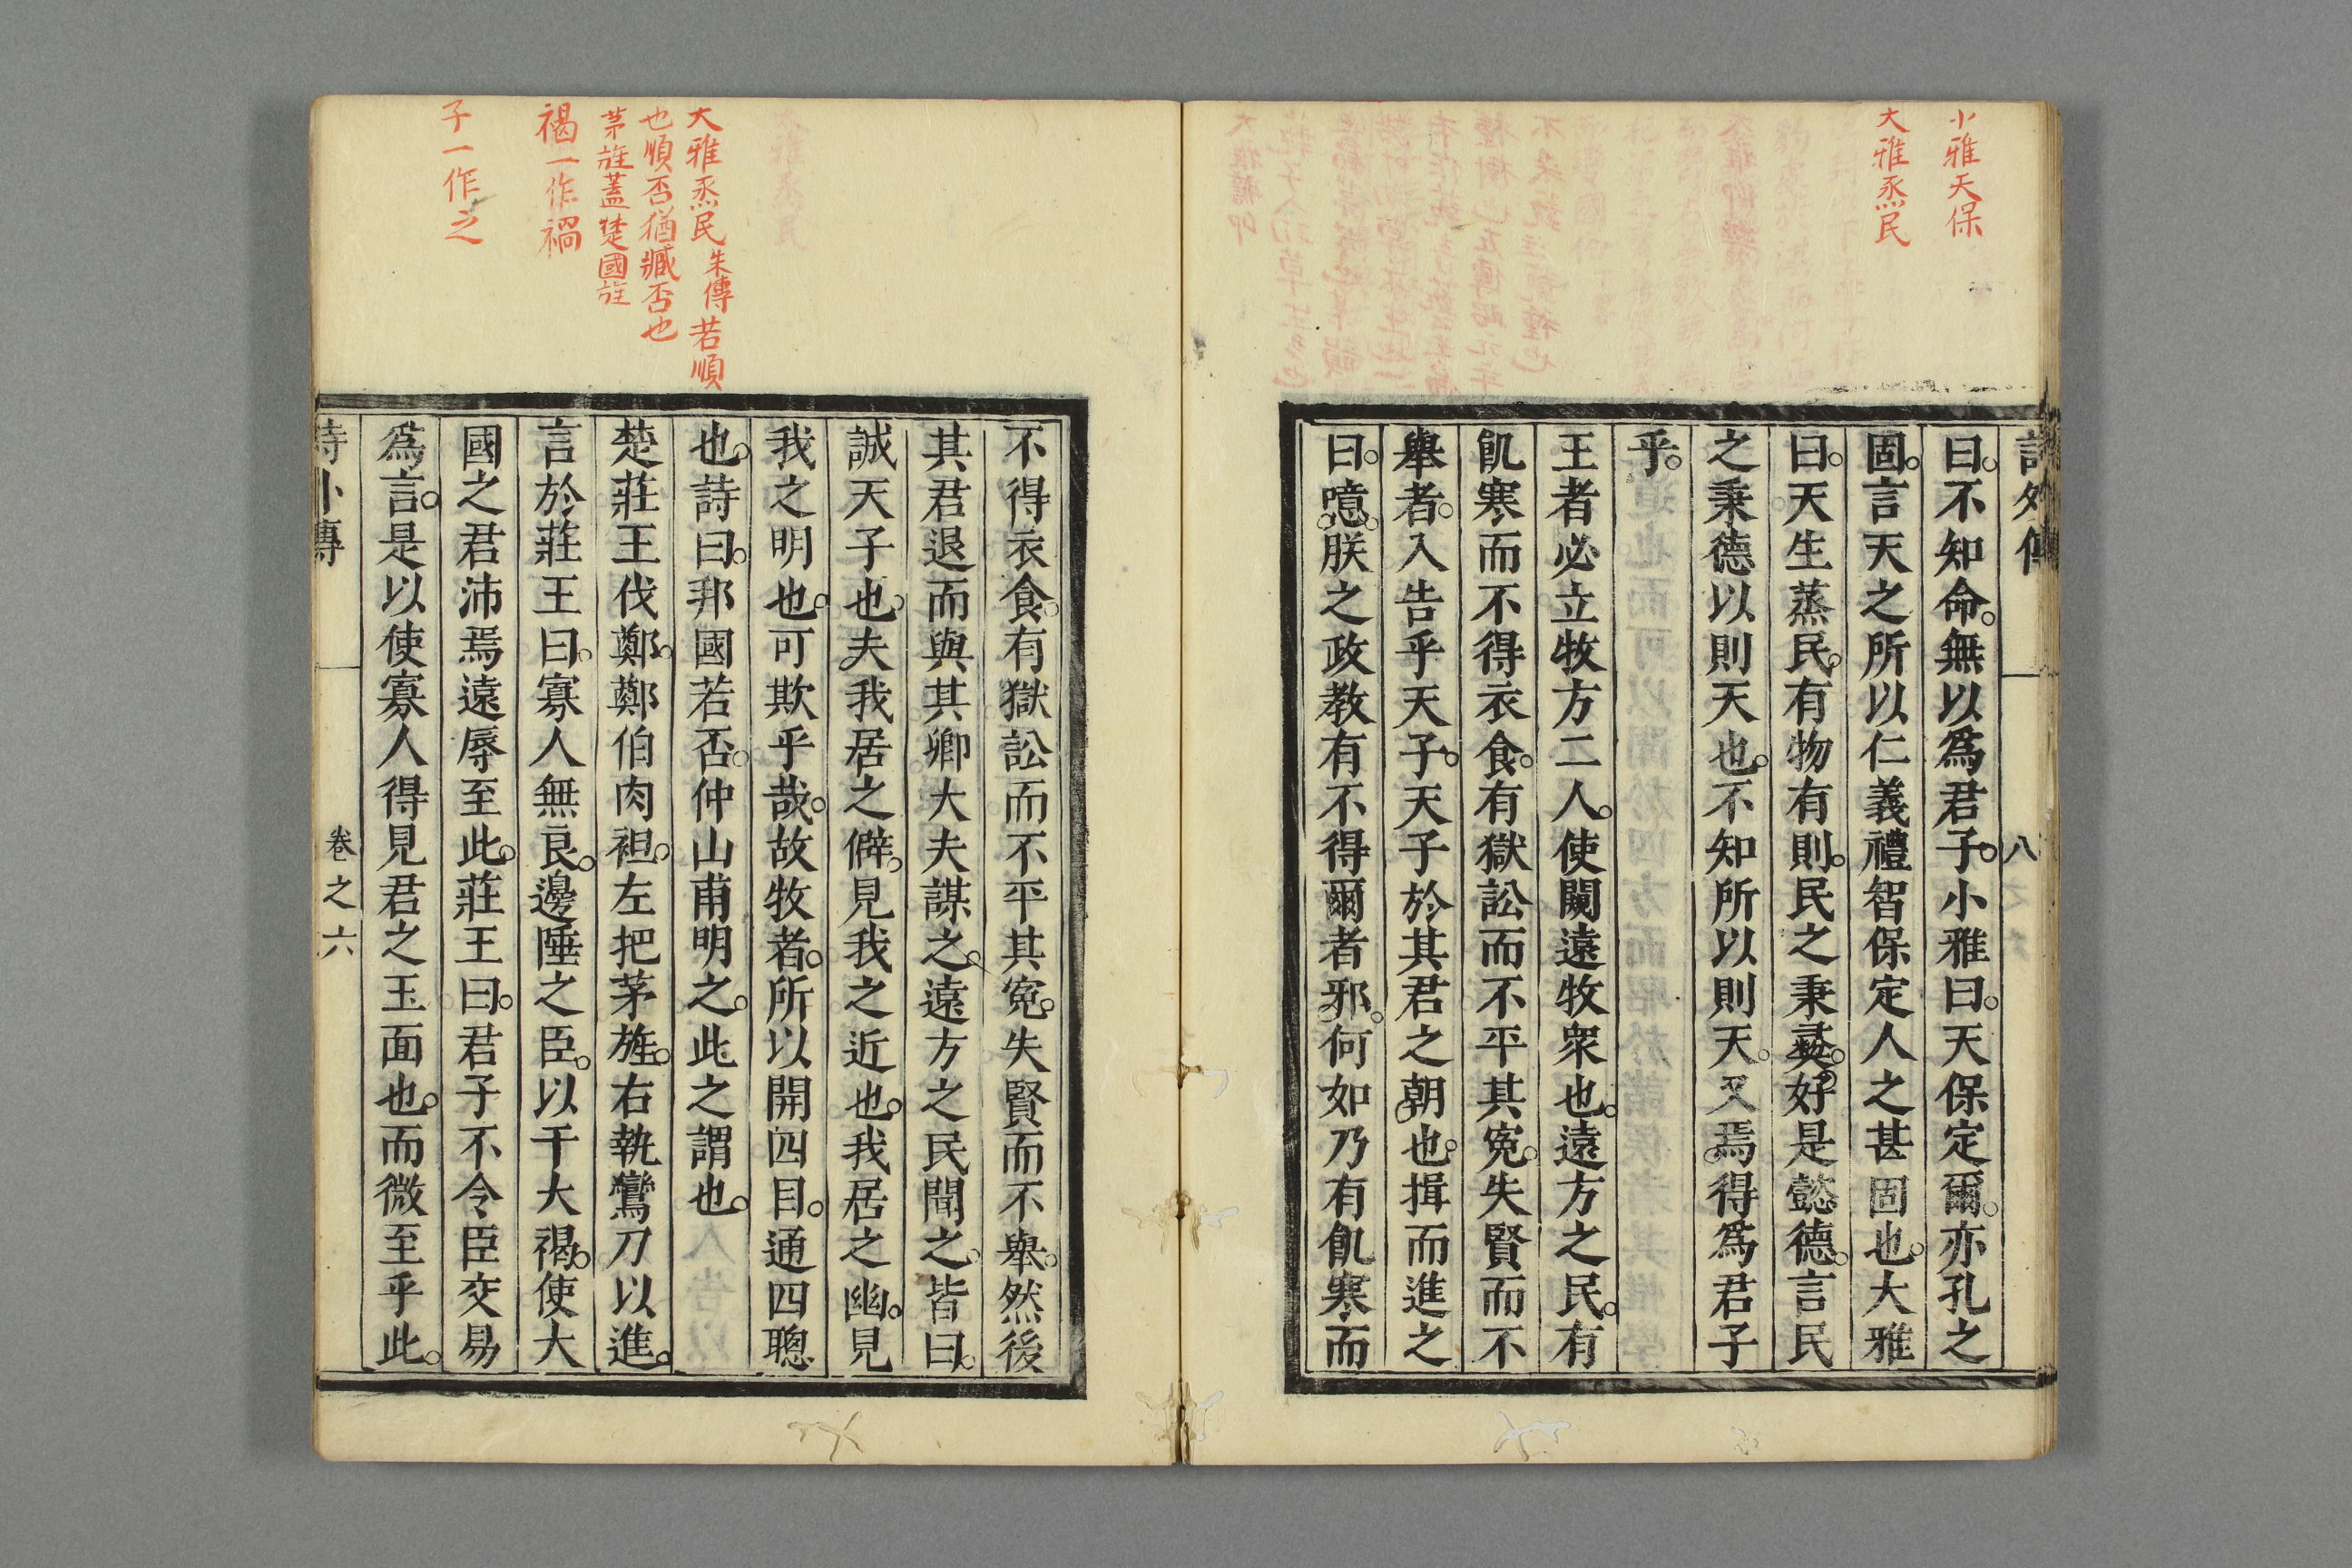 小雅天保
大雅烝民
詩外傳
八
曰。不知命。無以爲君子。小雅曰。天保定爾。亦孔之
固。言天之所以仁義禮智保定人之甚固也。大雅
曰。天生蒸民。有物有則。民之秉彝。好是懿德。言民
之秉德以則天也。不知所以則天。又焉得爲君子
乎。
王者必立牧方二人。使闚遠牧衆也。遠方之民。有
飢寒而不得衣食。有獄訟而不平其寃。失賢而不
舉者。入告乎天子。天子於其君之朝也。揖而進之
曰。噫。朕之政教有不得爾者邪。何如乃有飢寒而
大雅烝民朱傳若順
也順否猶臧否也
茅旌蓋楚國旌
褐一作禍
子一作之
不得衣食。有獄訟而不平其寃。失賢而不舉。然後
其君退而與其卿大夫謀之。遠方之民聞之。皆曰。
誠天子也。夫我居之僻。見我之近也。我居之幽。見
我之明也。可欺乎哉。故牧者。所以開四目。通四聰
也。詩曰。邦國若否。仲山甫明之。此之謂也。
楚莊王伐鄭。鄭伯肉袒。左把茅旌。右執鸞刀以進。
言於莊王曰。寡人無良。邊陲之臣。以干大褐。使大
國之君沛焉遠辱至此。莊王曰。君子不令臣交易
爲言。是以使寡人得見君之玉面也。而微至乎此。
詩外傳
卷之六